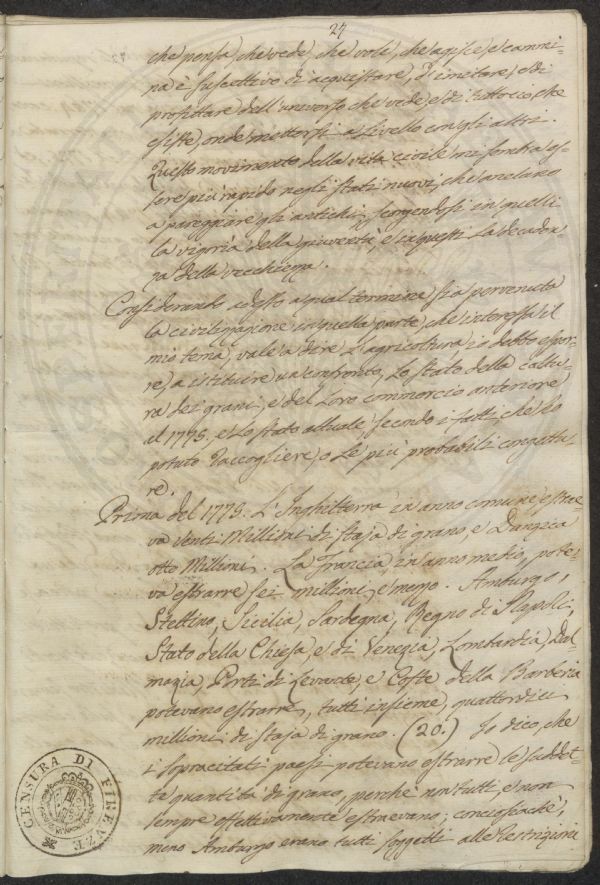 27
che pensa, che vede, che vole, che agisce, e cammi-
na è suscettivo di acquistare, d'imitare, e di
profittare dell'universo che vede, e di tuttociò, che
esiste, onde mettersi a livello con gli altri.
Questo movimento della vita civile mi sembra es-
sere più rapido negli stati nuovi, che anelano
a pareggiare gli antichi, scorgendosi in quelli
la vigoria della gioventù, e in questi la decaden-
za della vecchiezza.
Considerando adesso a qual termine sia pervenuta
la civilizzazione in quella parte, che interessa il
mio tema, vale a dire l'agricoltura, io debbo espor-
re, a istituire un confronto, lo stato della coltu-
ra dei grani, e del loro commercio anteriore
al 1775, e lo stato attuale, secondo i fatti, che ho
potuto raccogliere, o le più probabili congettu-
re.
Prima del 1775. L'Inghilterra in anno comune estrae-
va venti Millioni di staja di grano, e Danzica
otto Millioni. La Francia, in anno medio, pote-
va estrarre sei millioni e mezzo. Amburgo,
Stettino, Sicilia, Sardegna, Regno di Napoli,
Stato della Chiesa, e di Venezia, Lombardia, Dal-
mazia, Porti di Levante, e Coste della Barberia
potevano estrarre, tutti insieme, quattordici
millioni di staja di grano. (20.) Io dico, che
i sopracitati paesi potevano estrarre le suddet-
te quantità di grano, perchè non tutti, e non
sempre effettivamente estraevano; conciosiachè,
meno Amburgo erano tutti soggetti alle restrizioni
CENSURA DI FIRENZE